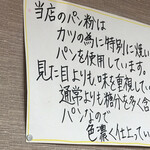 当店のパン粉は
カツの為に特別に焼い
パンを使用しています。
見た目よりも味を重視してい
通常よりも糖分を多く含
パンなので
色濃く仕上ってい